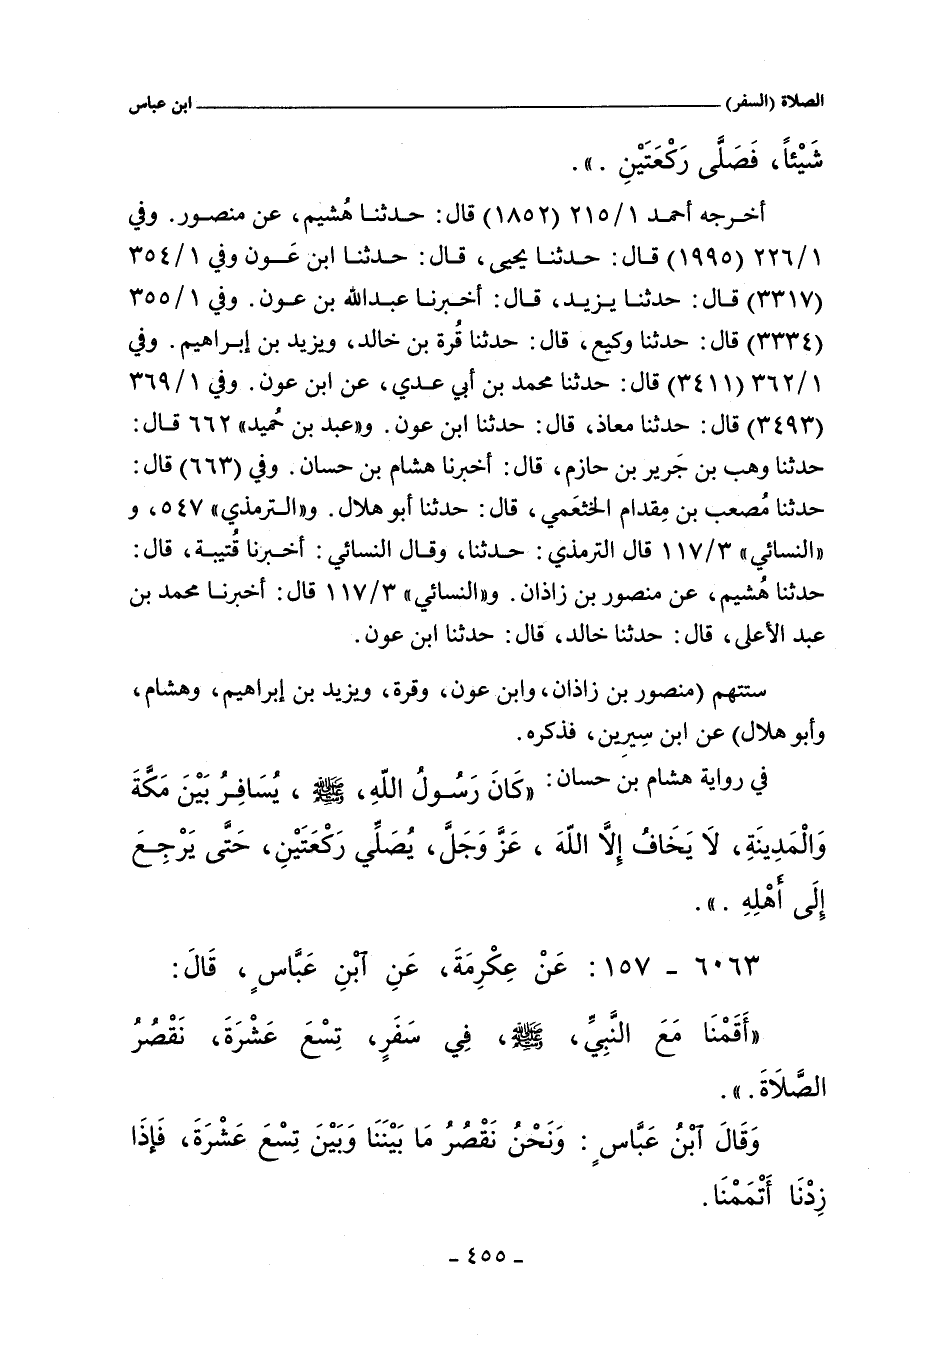 الصلاة (السفر) ـــــــــــــــــــــــــــــــــــــــ ابن عباس
شَيْئاً، فَصَلَّى رَكْعَتَيْنِ .».
أخـرجه أحمد ٢١٥/١ (١٨٥٢) قال: حـدثنـا هُشيم، عن منصـور. وفي
٢٢٦/١ (١٩٩٥) قـال: حـدثنـا يحيى، قـال: حـدثنـا ابن عَـون وفي ٣٥٤/١
(٣٣١٧) قـال: حدثنـا يـزيـد، قـال: أخـبرنـا عبـدالله بن عـون. وفي ٣٥٥/١
(٣٣٣٤) قال: حدثنا وكيع، قال: حدثنا قُرة بن خالد، ويزيد بن إبـراهيم. وفي
٣٦٢/١ (٣٤١١) قال: حدثنا محمد بن أبي عـدي، عن ابن عون. وفي ٣٦٩/١
(٣٤٩٣) قال: حدثنا معاذ، قال: حدثنا ابن عون. و«عبد بن حُميد» ٦٦٢ قـال:
حدثنا وهب بن جَرير بن حازم، قال: أخبرنا هشام بن حسان. وفي (٦٦٣) قال:
حدثنا مُصعب بن مِقدام الخثعَمي، قال: حدثنا أبو هلال. و«الـترمذي» ٥٤٧، و
«النسائي» ١١٧/٣ قال الترمذي: حـدثنا، وقـال النسائي: أخـبرنا قُتيبة، قال:
حدثنا هُشيم، عن منصور بن زاذان. و«النسائي» ١١٧/٣ قال: أخبرنـا محمد بن
عبد الأعلى، قال: حدثنا خالد، قال: حدثنا ابن عون.
ستتهم (منصور بن زاذان، وابن عون، وقرة، ويزيد بن إبراهيم، وهشام،
وأبو هلال) عن ابن سِيرين، فذكره.
في رواية هشام بن حسان: «كَانَ رَسُـولُ اللّهِ، ﷺ ، يُسَافِـرُ بَيْنَ مَكَّةَ
وَالْمَدِينَةِ، لَا يَخَافُ إِلَّا اللّهَ ، عَزَّ وَجَلَّ، يُصَلِّي رَكْعَتَيْنِ، حَتَّى يَرْجِـعَ
إِلَى أَهْلِهِ .».
٦٠٦٣ - ١٥٧: عَنْ عِكْرِمَةَ، عَنِ ٱبْنِ عَبَّاسٍ ، قَالَ:
«أَقَمْنَا مَعَ النَّبِيِّ، ﷺ، فِي سَفَرٍ، تِسْعَ عَشْرَةَ، نَقْصُرُ
الصَّلَاةَ.».
وَقَالَ ٱبْنُ عَبَّاسٍ : وَنَحْنُ نَقْصُرُ مَا بَيْنَنَا وَبَيْنَ تِسْعَ عَشْرَةَ، فَإِذَا
زِدْنَا أَتْمَمْنَا.
- ٤٥٥ -